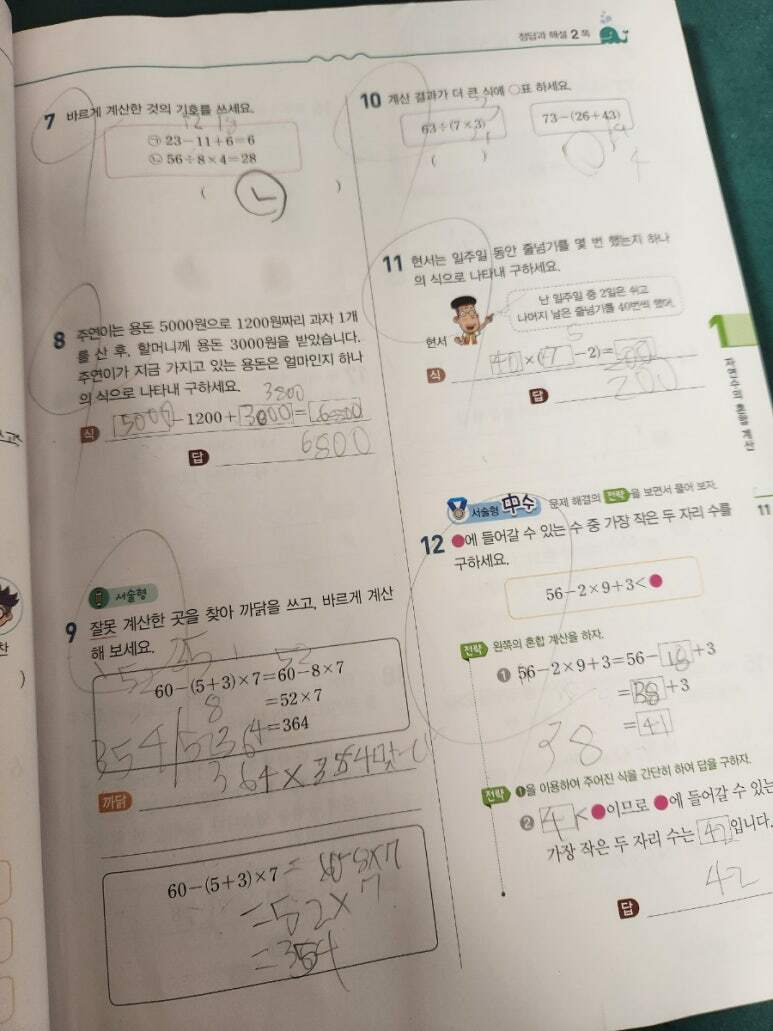 정답과 해설 2쪽
7 바르게 계산한 것의 기호를 쓰세요.
㉠ 23－11＋6＝6
㉡ 56÷8×4＝28
( ㄴ )
8 주연이는 용돈 5000원으로 1200원짜리 과자 1개
를 산 후, 할머니께 용돈 3000원을 받았습니다.
주연이가 지금 가지고 있는 용돈은 얼마인지 하나
의 식으로 나타내 구하세요.
3800
식 5000－1200＋3000＝6800
답 6800
서술형
9 잘못 계산한 곳을 찾아 까닭을 쓰고, 바르게 계산
해 보세요.
52
60－(5＋3)×7＝60－8×7
8
＝52×7
＝364
364
까닭
60－(5＋3)×7 = 60-8×7
=52×7
=354
10 계산 결과가 더 큰 식에 ○표 하세요.
63÷(7×3)
73－(26＋43)
( )
4
11 현서는 일주일 동안 줄넘기를 몇 번 했는지 하나
의 식으로 나타내 구하세요.
난 일주일 중 2일은 쉬고
나머지 날은 줄넘기를 40번씩 했어.
현서
5
식 40×(7－2)＝200
답 200
1
자연수의 혼합 계산
11
서술형 中수 문제 해결의 전략을 보면서 풀어 보자.
12 ●에 들어갈 수 있는 수 중 가장 작은 두 자리 수를
구하세요.
56－2×9＋3<●
전략 왼쪽의 혼합 계산을 하자.
❶ 56－2×9＋3＝56－18＋3
＝38＋3
＝41
38
전략 ❶을 이용하여 주어진 식을 간단히 하여 답을 구하자.
❷ 41<●이므로 ●에 들어갈 수 있는
가장 작은 두 자리 수는 42입니다.
답 42